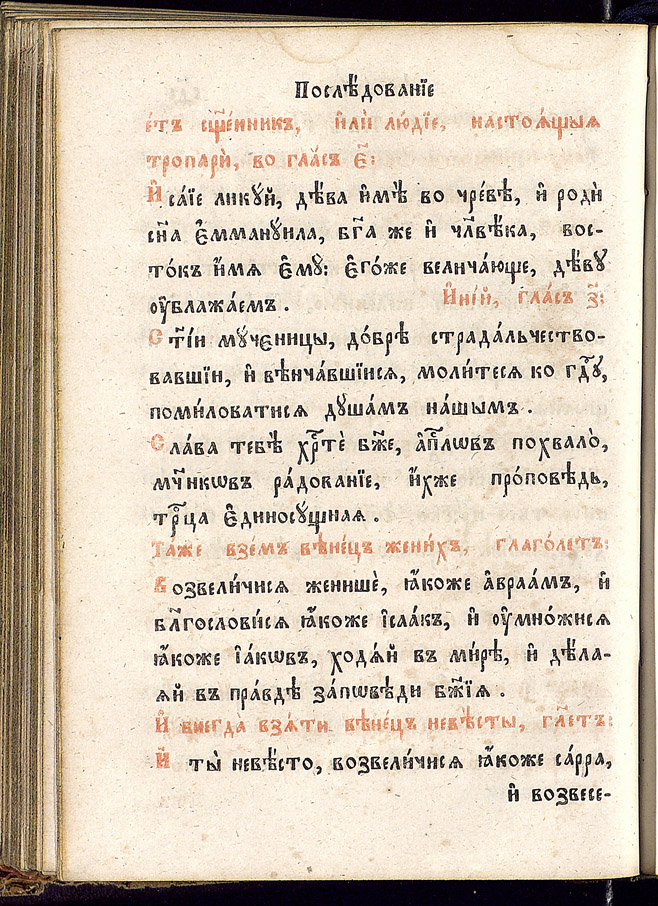 Послѣ́дованїе
е́тъ сщ҃е́нникъ, и҆лѝ лю́дїе, настоѧ́щыѧ
тропарѝ, во гла́съ є҃:
И҆са́їе ликꙋ́й, дѣ́ва и҆мѣ̀ во чре́вѣ, и҆ родѝ
сн҃а Є҆мманꙋи́ла, бг҃а же и҆ чл҃вѣ́ка, вос-
то́къ и҆́мѧ є҆мꙋ̀: є҆го́же велича́юще, дѣ́вꙋ
оу҆блажа́емъ. И҆ні́й, гла́съ з҃:
Ст҃і́и мꙋ́ченицы, до́брѣ страда́льчество-
вавшїи, и҆ вѣнча́вшїисѧ, моли́тесѧ ко гдⷭ҇ꙋ,
поми́ловатисѧ дꙋша́мъ на́шымъ.
Сла́ва тебѣ̀ хрⷭ҇тѐ бж҃е, а҆пⷭ҇лѡвъ похвало̀,
мч҃никѡвъ ра́дованїе, и҆́хже про́повѣдь,
трⷪ҇ца є҆диносꙋ́щнаѧ.
Та́же взе́мъ вѣне́цъ жени́хъ, глаго́летъ:
Возвели́чисѧ женишѐ, ꙗ҆́коже а҆враа́мъ, и҆
бл҃гослови́сѧ ꙗ҆́коже і҆саа́къ, и҆ оу҆мно́жисѧ
ꙗ҆́коже і҆а́кѡвъ, ходѧ́й въ ми́рѣ, и҆ дѣ́ла-
ѧй въ пра́вдѣ за́пѡвѣди бж҃їѧ.
И҆ внегда̀ взѧ́ти вѣне́цъ невѣ́сты, гл҃етъ:
И҆ ты̀ невѣ́сто, возвели́чисѧ ꙗ҆́коже са́рра,
и҆ возвесе-